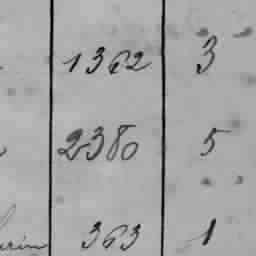 1362 3
2380 5
363 1